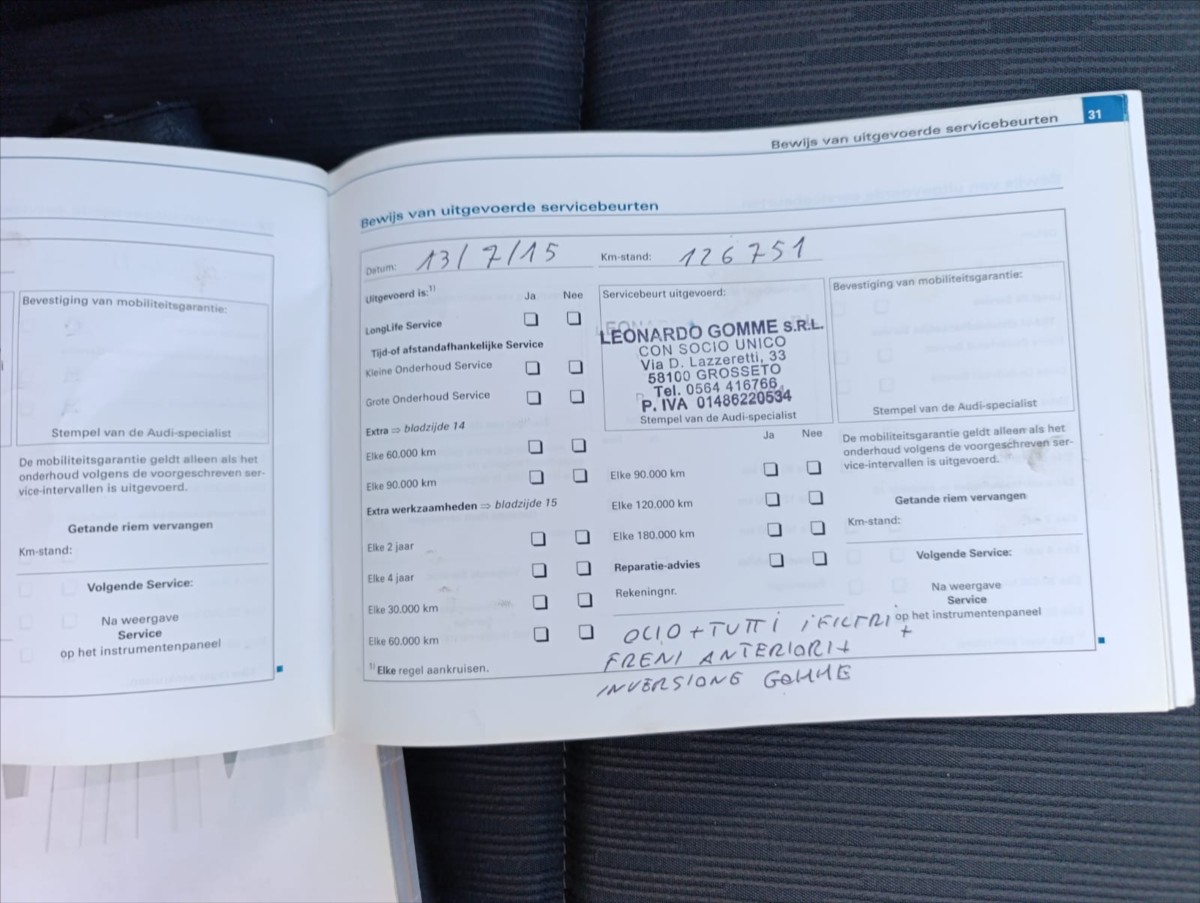 Bevestiging van mobiliteitsgarantie:
Stempel van de Audi-specialist
De mobiliteitsgarantie geldt alleen als het
onderhoud volgens de voorgeschreven ser-
vice-intervallen is uitgevoerd.
Getande riem vervangen
Km-stand:
Volgende Service:
Na weergave
Service
op het instrumentenpaneel
Bewijs van uitgevoerde servicebeurten 31
Bewijs van uitgevoerde servicebeurten
Datum: 13/7/15 Km-stand: 126751
Uitgevoerd is:1) Ja Nee
LongLife Service
Tijd-of afstandafhankelijke Service
Kleine Onderhoud Service
Grote Onderhoud Service
Extra ⇒ bladzijde 14
Elke 60.000 km
Elke 90.000 km
Extra werkzaamheden ⇒ bladzijde 15
Elke 2 jaar
Elke 4 jaar
Elke 30.000 km
Elke 60.000 km
1) Elke regel aankruisen.
Servicebeurt uitgevoerd:
LEONARDO GOMME S.R.L.
CON SOCIO UNICO
Via D. Lazzeretti, 33
58100 GROSSETO
Tel. 0564 416766
P. IVA 01486220534
Stempel van de Audi-specialist
Ja Nee
Elke 90.000 km
Elke 120.000 km
Elke 180.000 km
Reparatie-advies
Rekeningnr.
OLIO + TUTTI i FILTRI +
FRENI ANTERIORI +
INVERSIONE GOMME
Bevestiging van mobiliteitsgarantie:
Stempel van de Audi-specialist
De mobiliteitsgarantie geldt alleen als het
onderhoud volgens de voorgeschreven ser-
vice-intervallen is uitgevoerd.
Getande riem vervangen
Km-stand:
Volgende Service:
Na weergave
Service
op het instrumentenpaneel